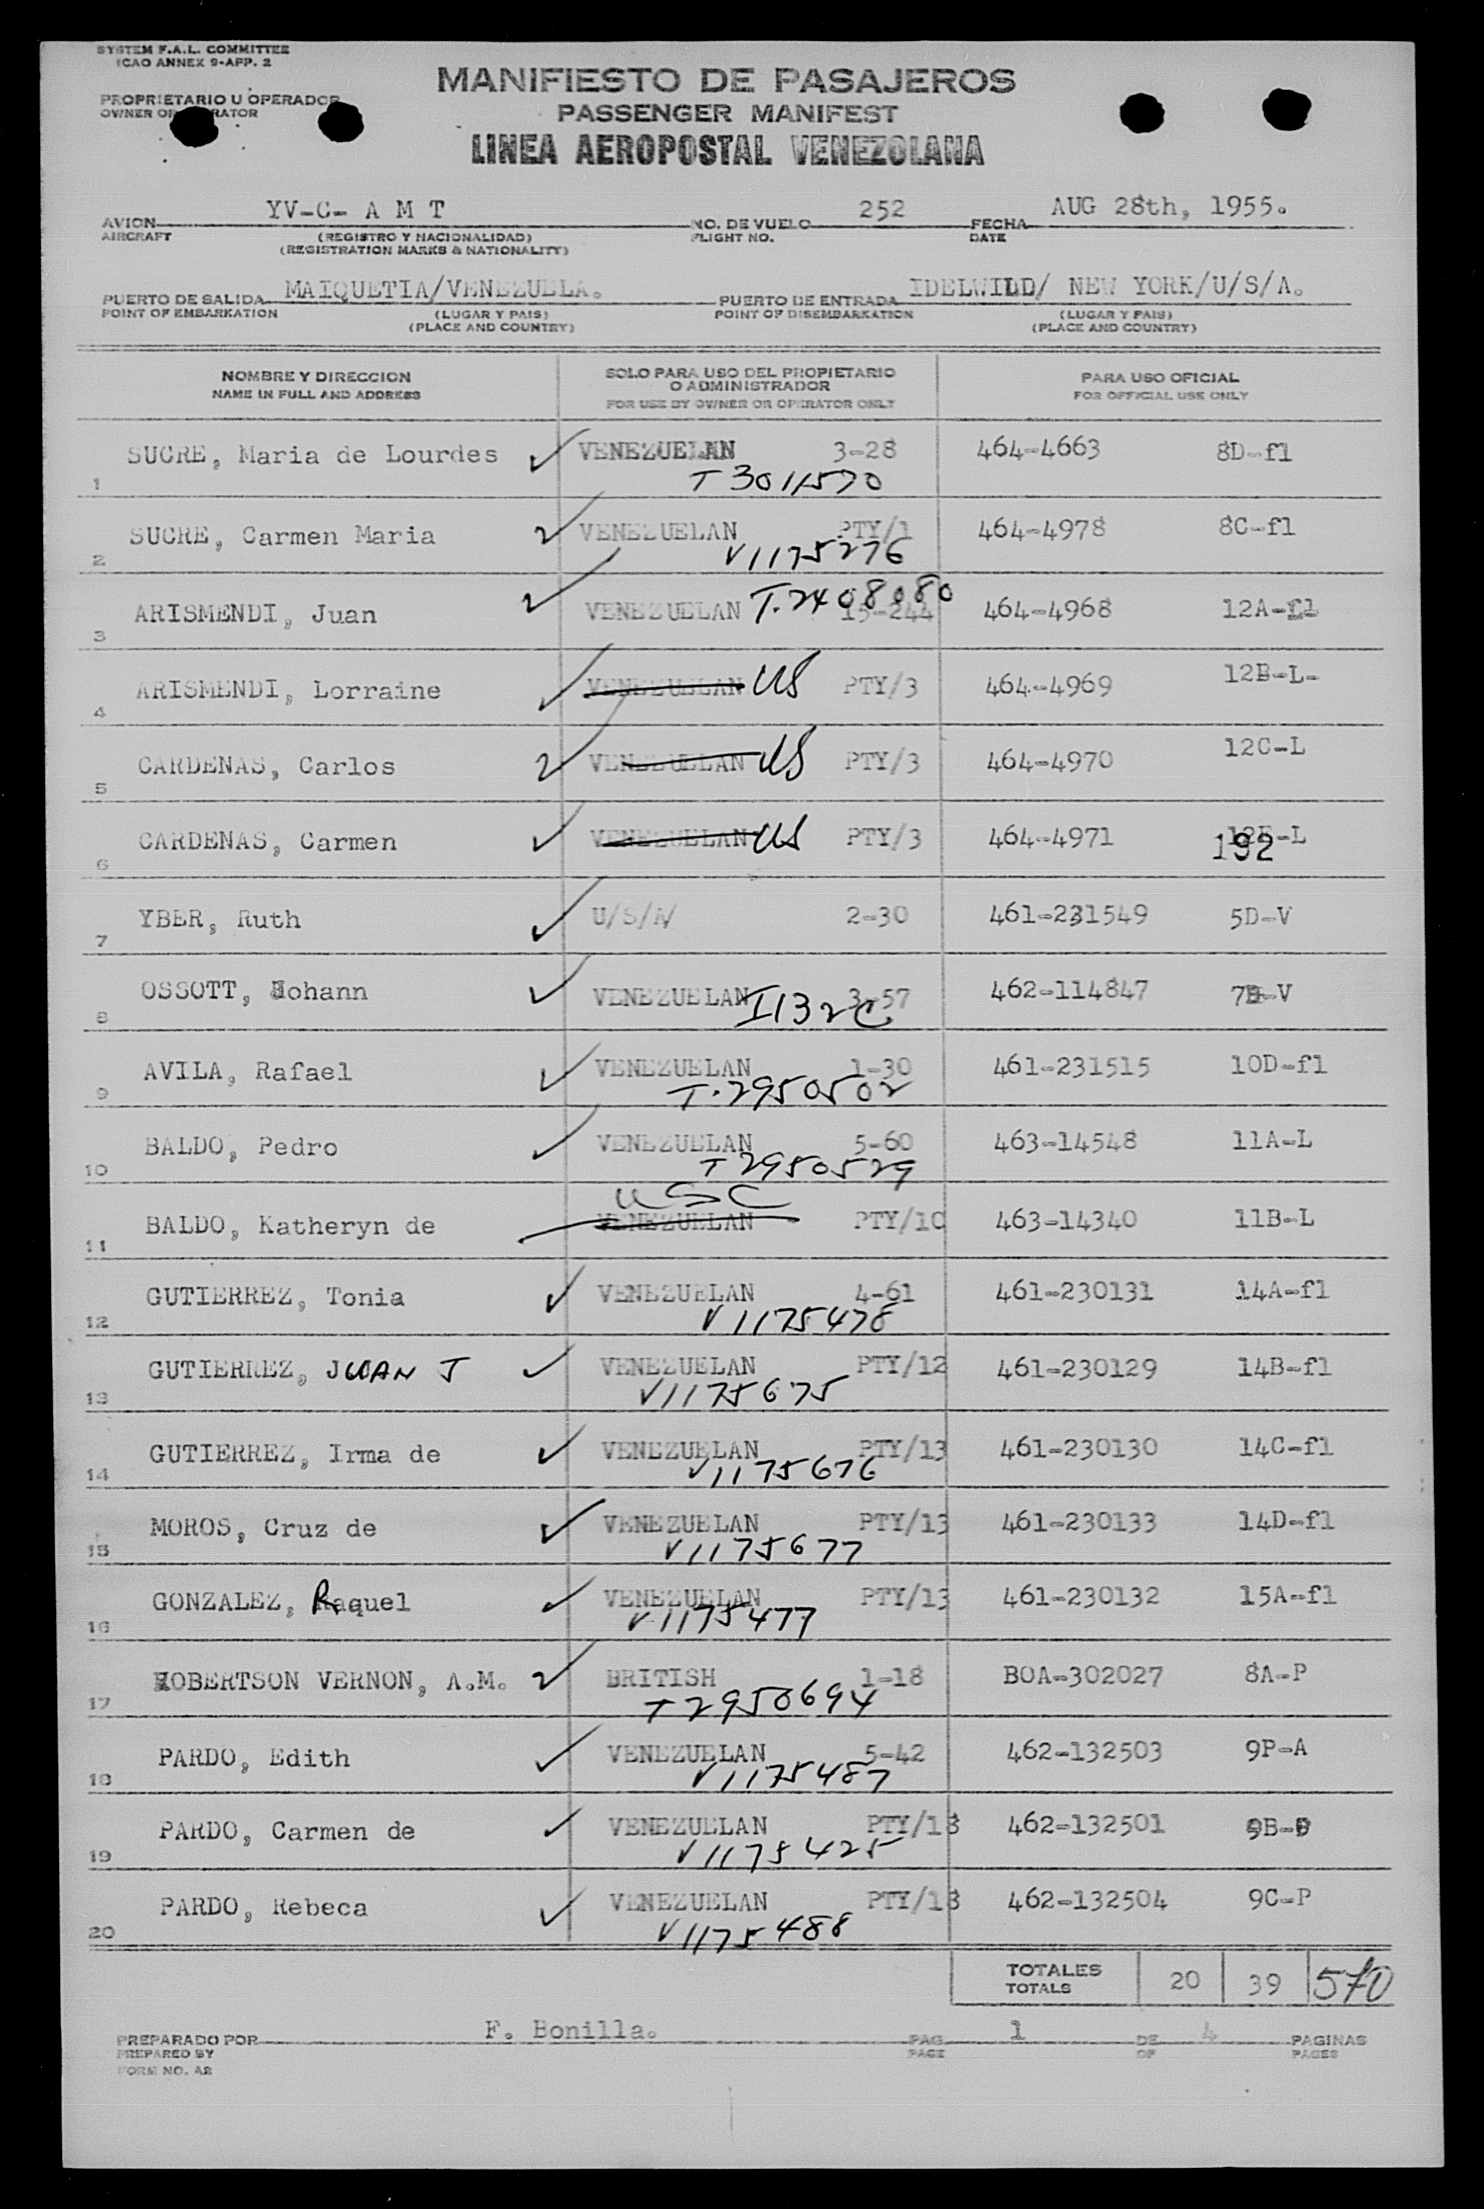 SYSTEM F.A.L. COMMITTEE
ICAO ANNEX 9-APP. 2
MANIFIESTO DE PASAJEROS
PROPRIETARIO U OPERADOR
OWNER OR
PASSENGER MANIFEST
LINEA AEROPOSTAL VENEZOLANA
YV-C- A M T 252 AUG 28th, 1955.
AVION NO. DE VUELO FECHA
AIRCRAFT (REGISTRO Y NACIONALIDAD) FLIGHT NO. DATE
(REGISTRATION MARKS & NATIONALITY)
MAIQUETIA/VENEZUELA. IDELWILD/ NEW YORK/U/S/A.
PUERTO DE SALIDA PUERTO DE ENTRADA
POINT OF EMBARKATION (LUGAR Y PAIS) POINT OF DISEMBARKATION (LUGAR Y PAIS)
(PLACE AND COUNTRY) (PLACE AND COUNTRY)
NOMBRE Y DIRECCION SOLO PARA USO DEL PROPIETARIO PARA USO OFICIAL
O ADMINISTRADOR
NAME IN FULL AND ADDRESS FOR USE BY OWNER OR OPERATOR ONLY FOR OFFICIAL USE ONLY
SUCRE, Maria de Lourdes VENEZUELAN 3-28 464-4663 8D-fl
1 T 3011570
SUCRE, Carmen Maria VENEZUELAN PTY/1 464-4978 8C-fl
2 V1175276
T.2408080
ARISMENDI, Juan VENEZUELAN 15-244 464-4968 12A-fl
3
ARISMENDI, Lorraine VENEZUELAN US PTY/3 464-4969 12B-L-
4
CARDENAS, Carlos VENEZUELAN US PTY/3 464-4970 12C-L
5
CARDENAS, Carmen VENEZUELAN US PTY/3 464-4971 -L
6 192
YBER, Ruth U/S/A/ 2-30 461-231549 5D-V
7
OSSOTT, Johann VENEZUELAN 3-57 462-114847 -V
8
AVILA, Rafael VENEZUELAN 1-30 461-231515 10D-fl
9 T.2950502
BALDO, Pedro VENEZUELAN 5-60 463-14548 11A-L
10 T 2950529
USC
BALDO, Katheryn de VENEZUELAN PTY/10 463-14340 11B-L
11
GUTIERREZ, Tonia VENEZUELAN 4-61 461-230131 14A-fl
12 V1175478
GUTIERREZ, JUAN J VENEZUELAN PTY/12 461-230129 14B-fl
13 V1175675
GUTIERREZ, Irma de VENEZUELAN PTY/13 461-230130 14C-fl
14 V1175676
MOROS, Cruz de VENEZUELAN PTY/13 461-230133 14D-fl
15 V1175677
GONZALEZ, Raquel VENEZUELAN PTY/13 461-230132 15A-fl
16 V1175477
ROBERTSON VERNON, A.M. BRITISH 1-18 BOA-302027 8A-P
17 T2950694
PARDO, Edith VENEZUELAN 5-42 462-132503 9P-A
18 V1175487
PARDO, Carmen de VENEZUELAN PTY/18 462-132501 9B-P
19 V1175425
PARDO, Rebeca VENEZUELAN PTY/18 462-132504 9C-P
20 V1175488
TOTALES
TOTALS 20 39 570
F. Bonilla. 1 4
PREPARADO POR PAG. DE PAGINAS
PREPARED BY PAGE OF PAGES
FORM NO. A2